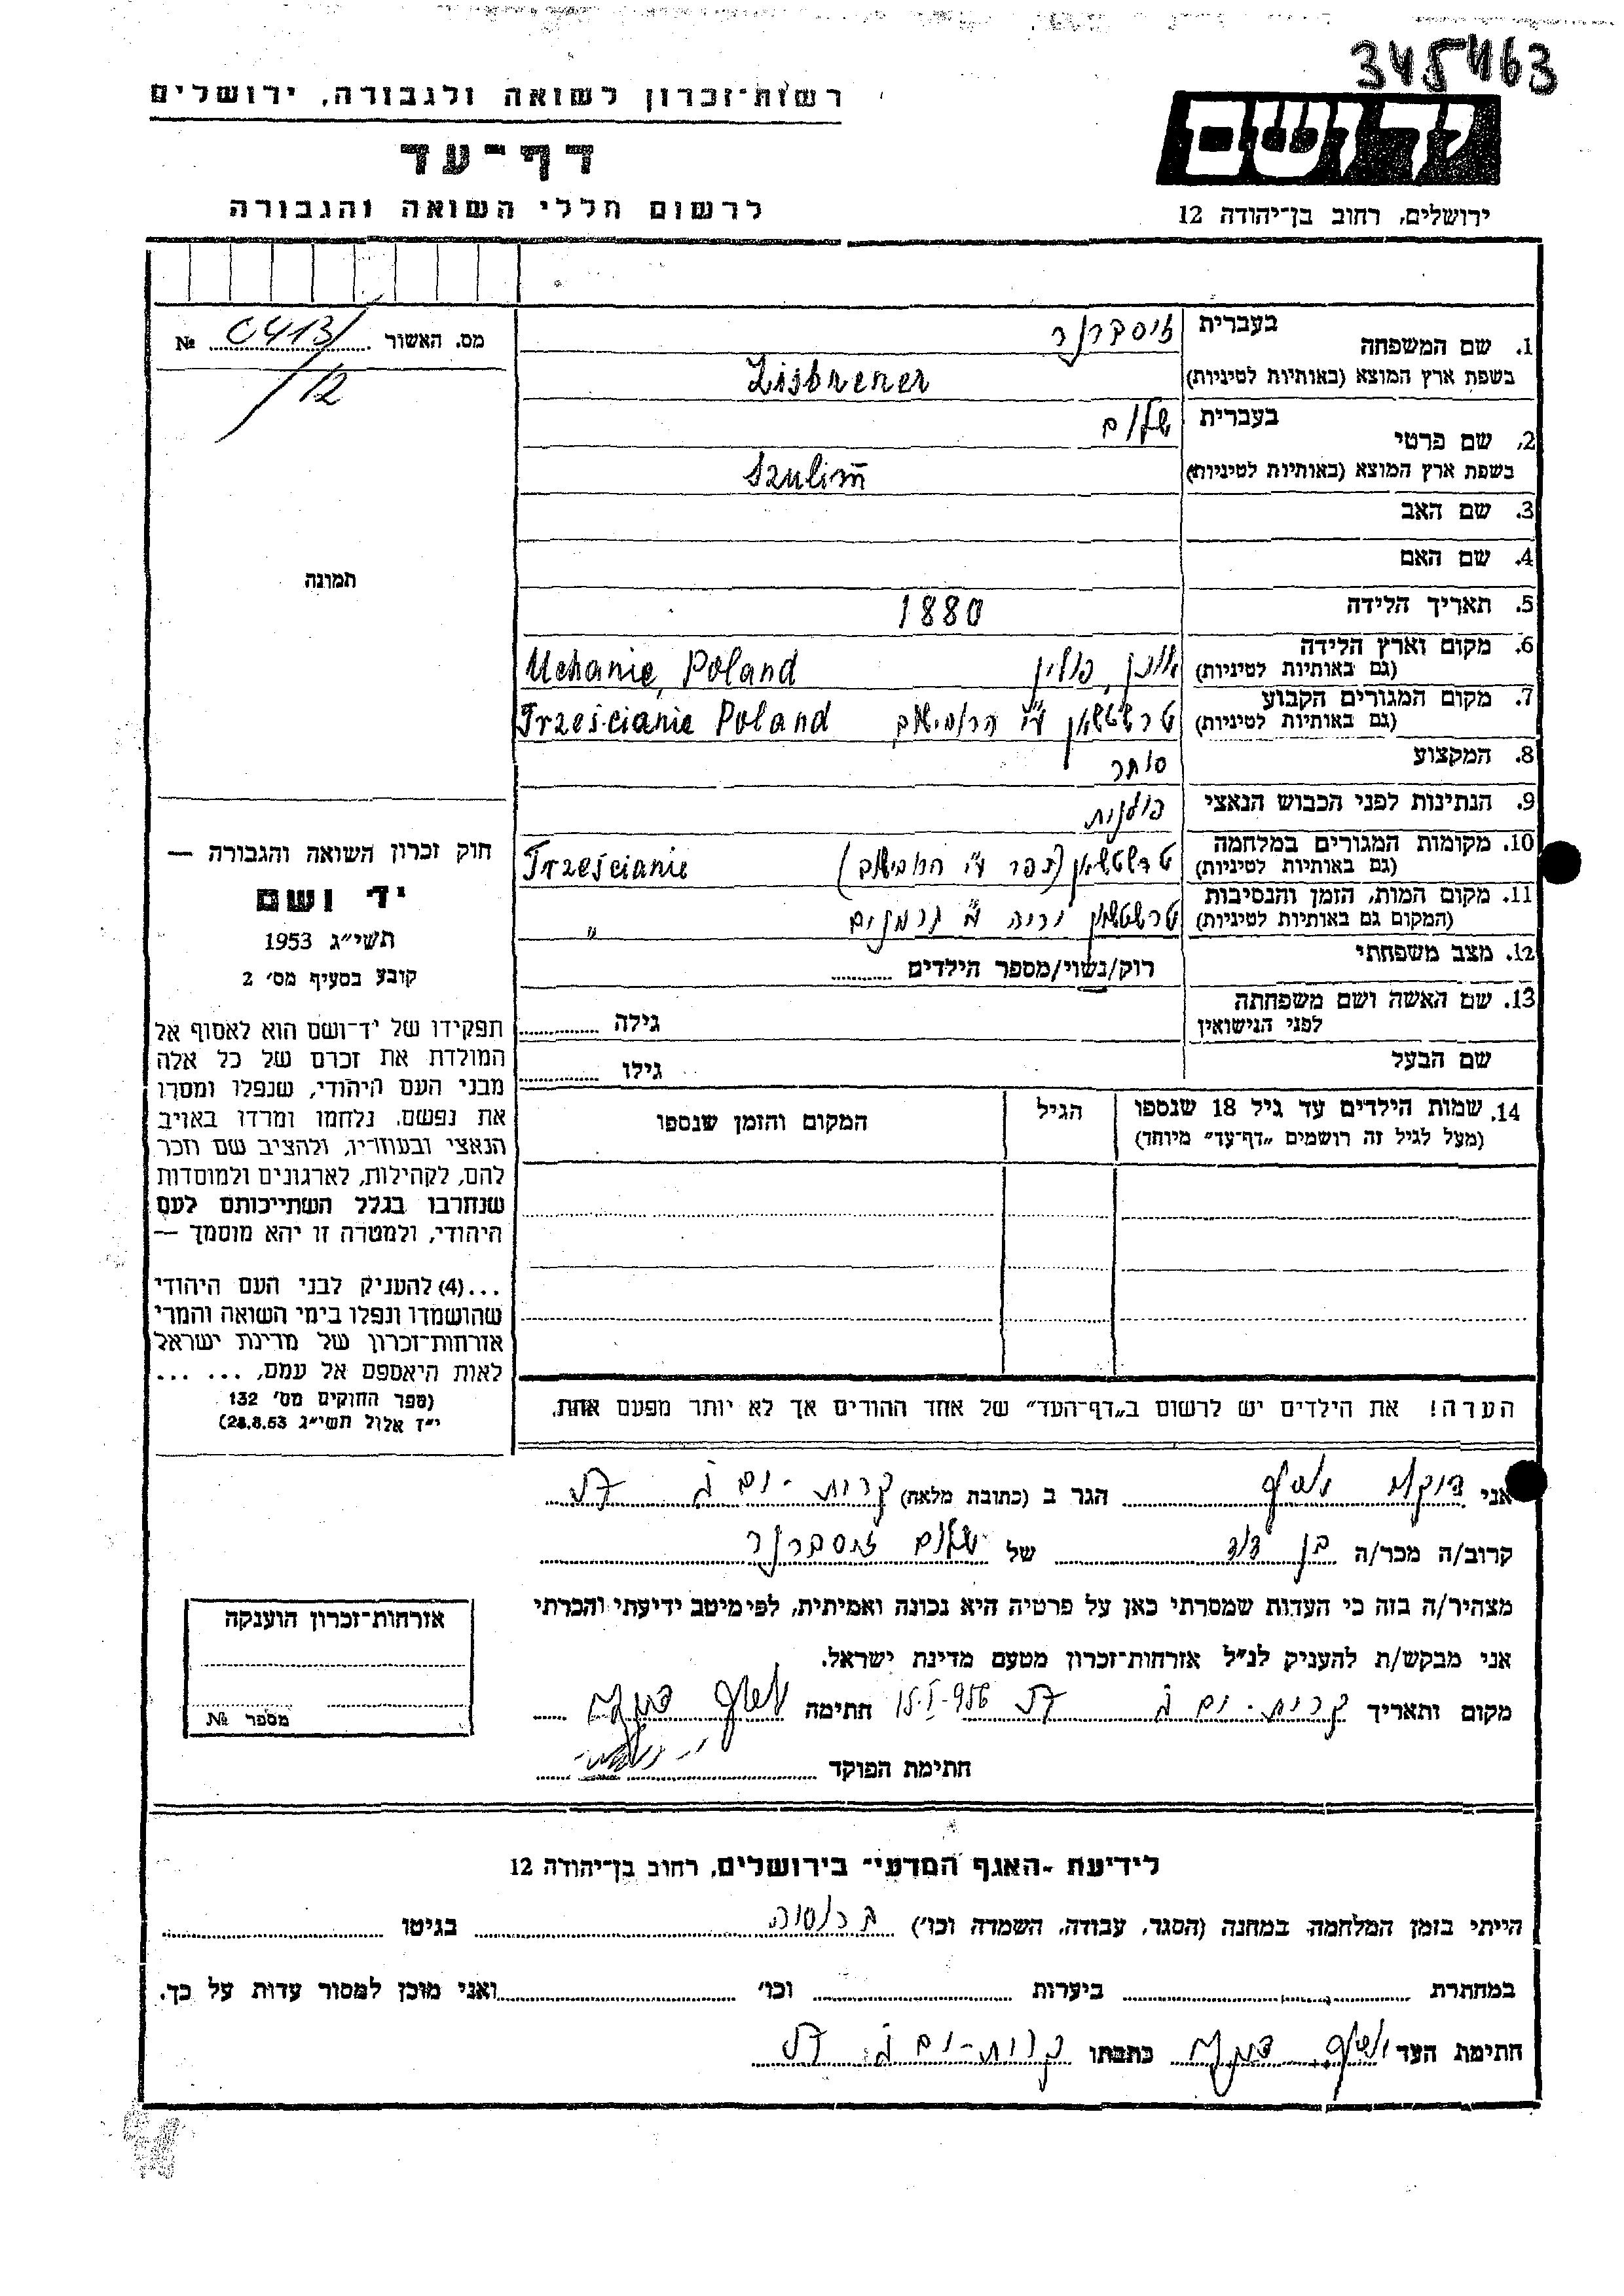 345463
רשות־זכרון לשואה ולגבורה, ירושלים
דף־עד
לרשום חללי השואה והגבורה
יד ושם
ירושלים, רחוב בן־יהודה 12
מס. האשור 0413/12 №
1. שם המשפחה בעברית זיסברנר
בשפת ארץ המוצא (באותיות לטיניות) Zisbrener
2. שם פרטי בעברית שלום
בשפת ארץ המוצא (באותיות לטיניות) Szulim
3. שם האב
4. שם האם
5. תאריך הלידה 1880
6. מקום וארץ הלידה
(גם באותיות לטיניות) פולין Uchanie, Poland
7. מקום המגורים הקבוע
(גם באותיות לטיניות) טרשטשאן ע"י הרובישוב Trześcianie Poland
8. המקצוע סוחר
9. הנתינות לפני הכבוש הנאצי פולנית
10. מקומות המגורים במלחמה
(גם באותיות לטיניות) טרשטשאן (כפר ע"י הרובישוב) Trześcianie
11. מקום המות, הזמן והנסיבות
(המקום גם באותיות לטיניות) טרשטשאן נורה ע"י גרמנים "
12. מצב משפחתי רוק/נשוי/מספר הילדים
13. שם האשה ושם משפחתה
לפני הנישואין גילה
שם הבעל גילו
14. שמות הילדים עד גיל 18 שנספו
(מעל לגיל זה רושמים „דף־עד" מיוחד)
הגיל
המקום והזמן שנספו
הערה! את הילדים יש לרשום ב„דף־העד" של אחד ההורים אך לא יותר מפעם אחת.
תמונה
חוק זכרון השואה והגבורה —
יד ושם
תשי"ג 1953
קובע בסעיף מס' 2
תפקידו של יד־ושם הוא לאסוף אל
המולדת את זכרם של כל אלה
מבני העם היהודי, שנפלו ומסרו
את נפשם, נלחמו ומרדו באויב
הנאצי ובעוזריו, ולהציב שם וזכר
להם, לקהילות, לארגונים ולמוסדות
שנחרבו בגלל השתייכותם לעם
היהודי, ולמטרה זו יהא מוסמך —
...(4) להעניק לבני העם היהודי
שהושמדו ונפלו בימי השואה והמרי
אזרחות־זכרון של מדינת ישראל
לאות היאספם אל עמם, ... ...
(ספר החוקים מס' 132
י"ז אלול תשי"ג 28.8.53)
אני יוסף הגר ב (כתובת מלאה) קרית-ים ג'
קרוב/ה מכר/ה בן דוד של שלום זיסברנר
מצהיר/ה בזה כי העדות שמסרתי כאן על פרטיה היא נכונה ואמיתית, לפי מיטב ידיעתי והכרתי
אני מבקש/ת להעניק לנ"ל אזרחות־זכרון מטעם מדינת ישראל.
מקום ותאריך קרית-ים ג' 15.I.956 חתימה יוסף
חתימת הפוקד
אזרחות־זכרון הוענקה
מספר №
לידיעת ־האגף המדעי־ בירושלים, רחוב בן־יהודה 12
הייתי בזמן המלחמה במחנה (הסגר, עבודה, השמדה וכו') ברוסיה בגיטו
במחתרת ביערות וכו' ואני מוכן למסור עדות על כך.
חתימת העד יוסף כתבתו קרית-ים ג'